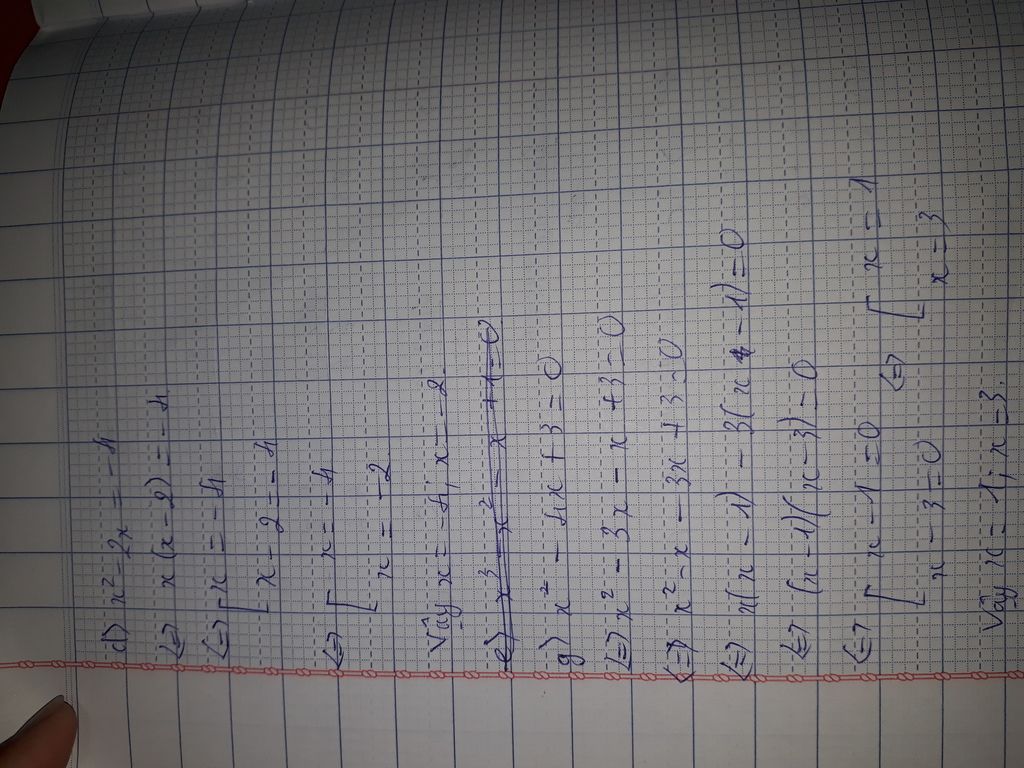 d) x² - 2x = -4
<=> x(x - 2) = -4
<=> [ x = -4
[ x - 2 = -4
<=> [ x = -4
[ x = -2
Vậy x = -4; x = -2
e) x³ - x² - x + 1 = 0
g) x² - 4x + 3 = 0
<=> x² - 3x - x + 3 = 0
<=> x² - x - 3x + 3 = 0
<=> x(x - 1) - 3(x - 1) = 0
<=> (x - 1)(x - 3) = 0
<=> [ x - 1 = 0 <=> [ x = 1
[ x - 3 = 0 [ x = 3
Vậy x = 1; x = 3.